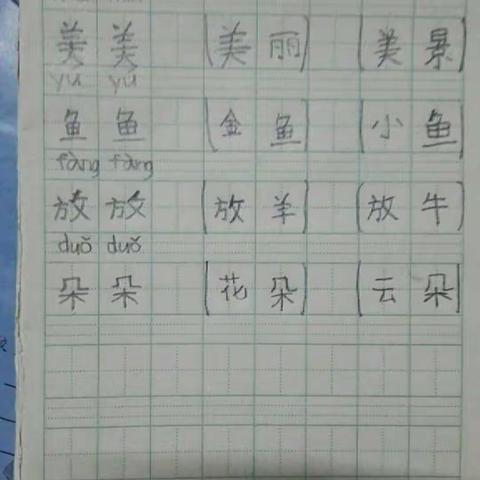 美 美 (美 丽) (美 景)
yú yú
鱼 鱼 (金 鱼) (小 鱼)
fàng fàng
放 放 (放 羊) (放 牛)
duǒ duǒ
朵 朵 (花 朵) (云 朵)